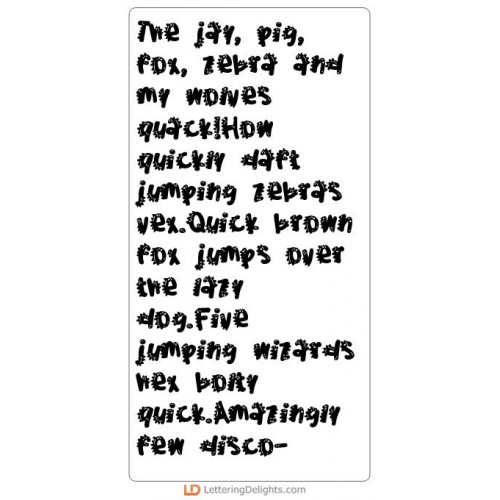 The jay, pig,
fox, zebra and
my wolves
quack!How
quickly daft
jumping zebras
vex.Quick brown
fox jumps over
the lazy
dog.Five
jumping wizards
hex bolty
quick.Amazingly
few disco-
LD LetteringDelights.com